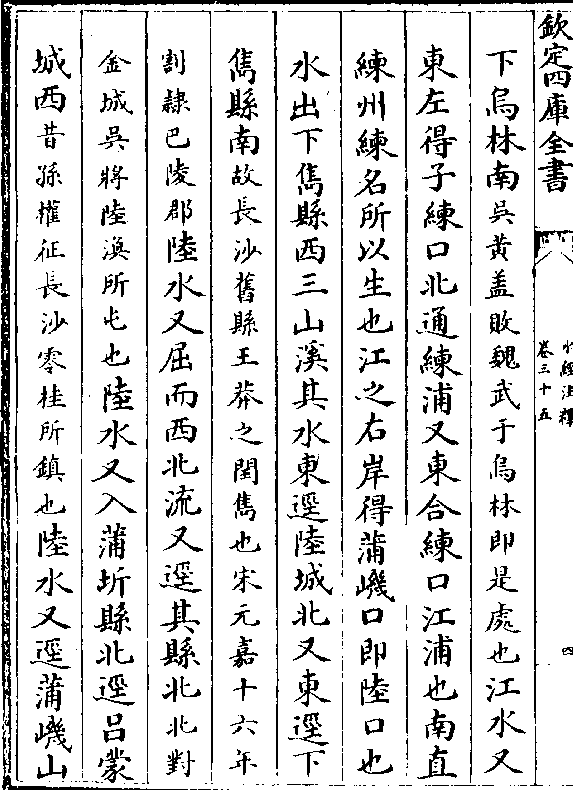 欽定四庫全書
水經注釋
卷三十五
四
下烏林南吳黃蓋敗魏武于烏林即是處也江水又
東左得子練口北通練浦又東合練口江浦也南直
練州練名所以生也江之右岸得蒲磯口即陸口也
水出下雋縣西三山溪其水東逕陸城北又東逕下
雋縣南故長沙舊縣王莽之閏雋也宋元嘉十六年
割隷巴陵郡陸水又屈而西北流又逕其縣北北對
金城吳將陸渙所屯也陸水又入蒲圻縣北逕呂蒙
城西昔孫權征長沙零桂所鎮也陸水又逕蒲磯山